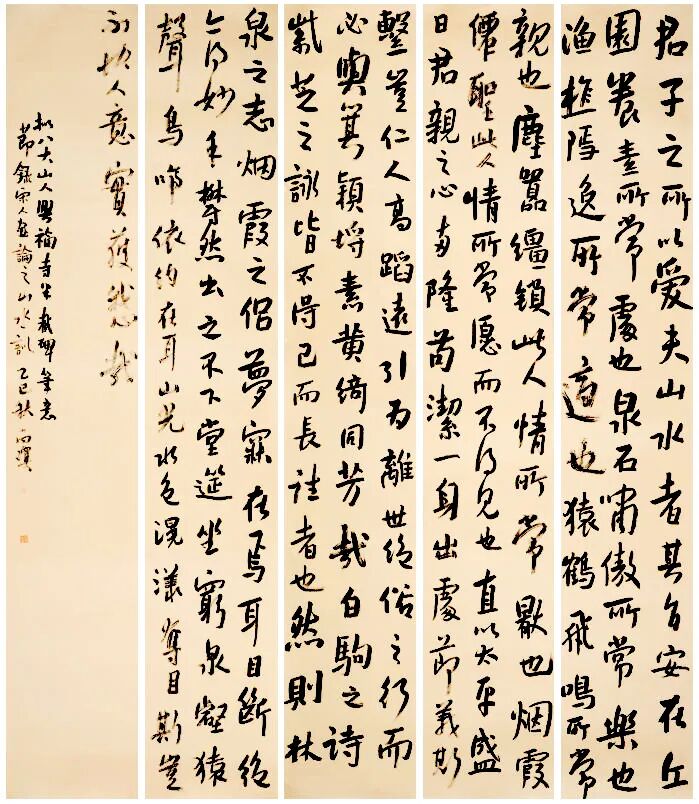 君子之所以愛夫山水者其旨安在丘
園養素所常處也泉石嘯傲所常樂也
漁樵隱逸所常適也猿鶴飛鳴所常
親也塵囂繮鎖此人情所常厭也烟霞
僊聖此人情所常愿而不得見也直以太平盛
日君親之心兩隆苟潔一身出處節義斯
繫豈仁人高蹈遠引為離世絕俗之行而
必與箕穎埒素黃綺同芳哉白駒之詩
紫芝之詠皆不得已而長往者也然則林
泉之志烟霞之侶夢寐在焉耳目斷絕
今得妙手鬱然出之不下堂筵坐窮泉壑猿
聲鳥啼依約在耳山光水色滉漾奪目斯豈
不快人意實獲我心哉
擬八大山人興福寺半截碑筆意
節錄宋人畫論之山水訓乙巳秋